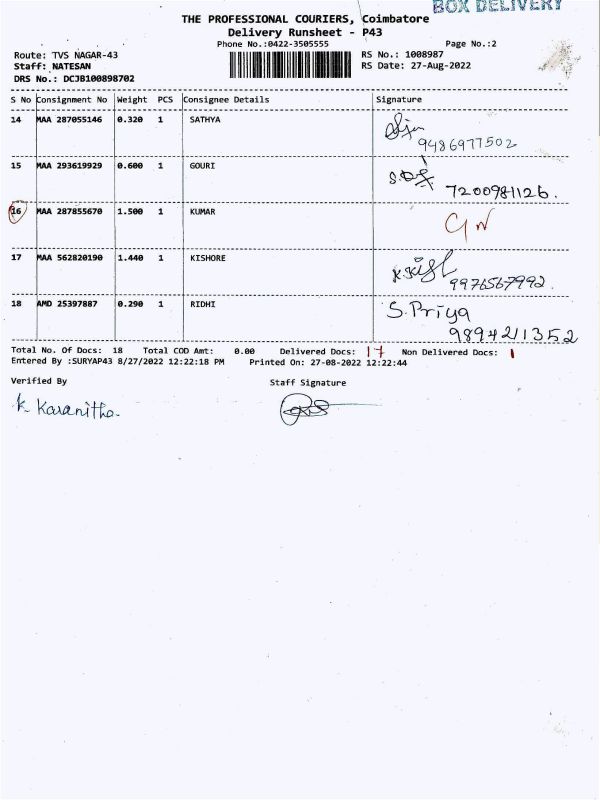 BOX DELIVERY
THE PROFESSIONAL COURIERS, Coimbatore
Delivery Runsheet - P43
Phone No.:0422-3505555
Page No.:2
Route: TVS NAGAR-43
RS No.: 1008987
Staff: NATESAN
RS Date: 27-Aug-2022
DRS No.: DCJB100898702
S No Consignment No Weight PCS Consignee Details Signature
14 MAA 287055146 0.320 1 SATHYA
9486977502
15 MAA 293619929 0.600 1 GOURI
7200981126.
16 MAA 287855670 1.500 1 KUMAR
17 MAA 562820190 1.440 1 KISHORE
9976567992.
18 AMD 25397887 0.290 1 RIDHI S.Priya
9894211352
Total No. Of Docs: 18 Total COD Amt: 0.00 Delivered Docs: 17 Non Delivered Docs: 1
Entered By :SURYAP43 8/27/2022 12:22:18 PM Printed On: 27-08-2022 12:22:44
Verified By Staff Signature
K. Karanitha.